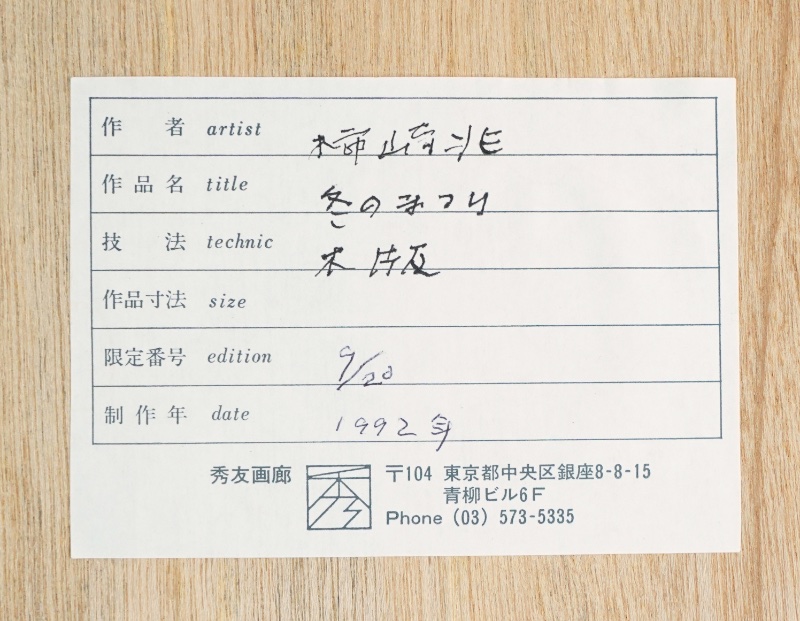 作者 artist 柿崎卯
作品名 title 冬のまつり
技法 technic 木版
作品寸法 size
限定番号 edition 9/20
制作年 date 1992年
秀友画廊 秀 〒104 東京都中央区銀座8-8-15
青柳ビル6F
Phone (03) 573-5335